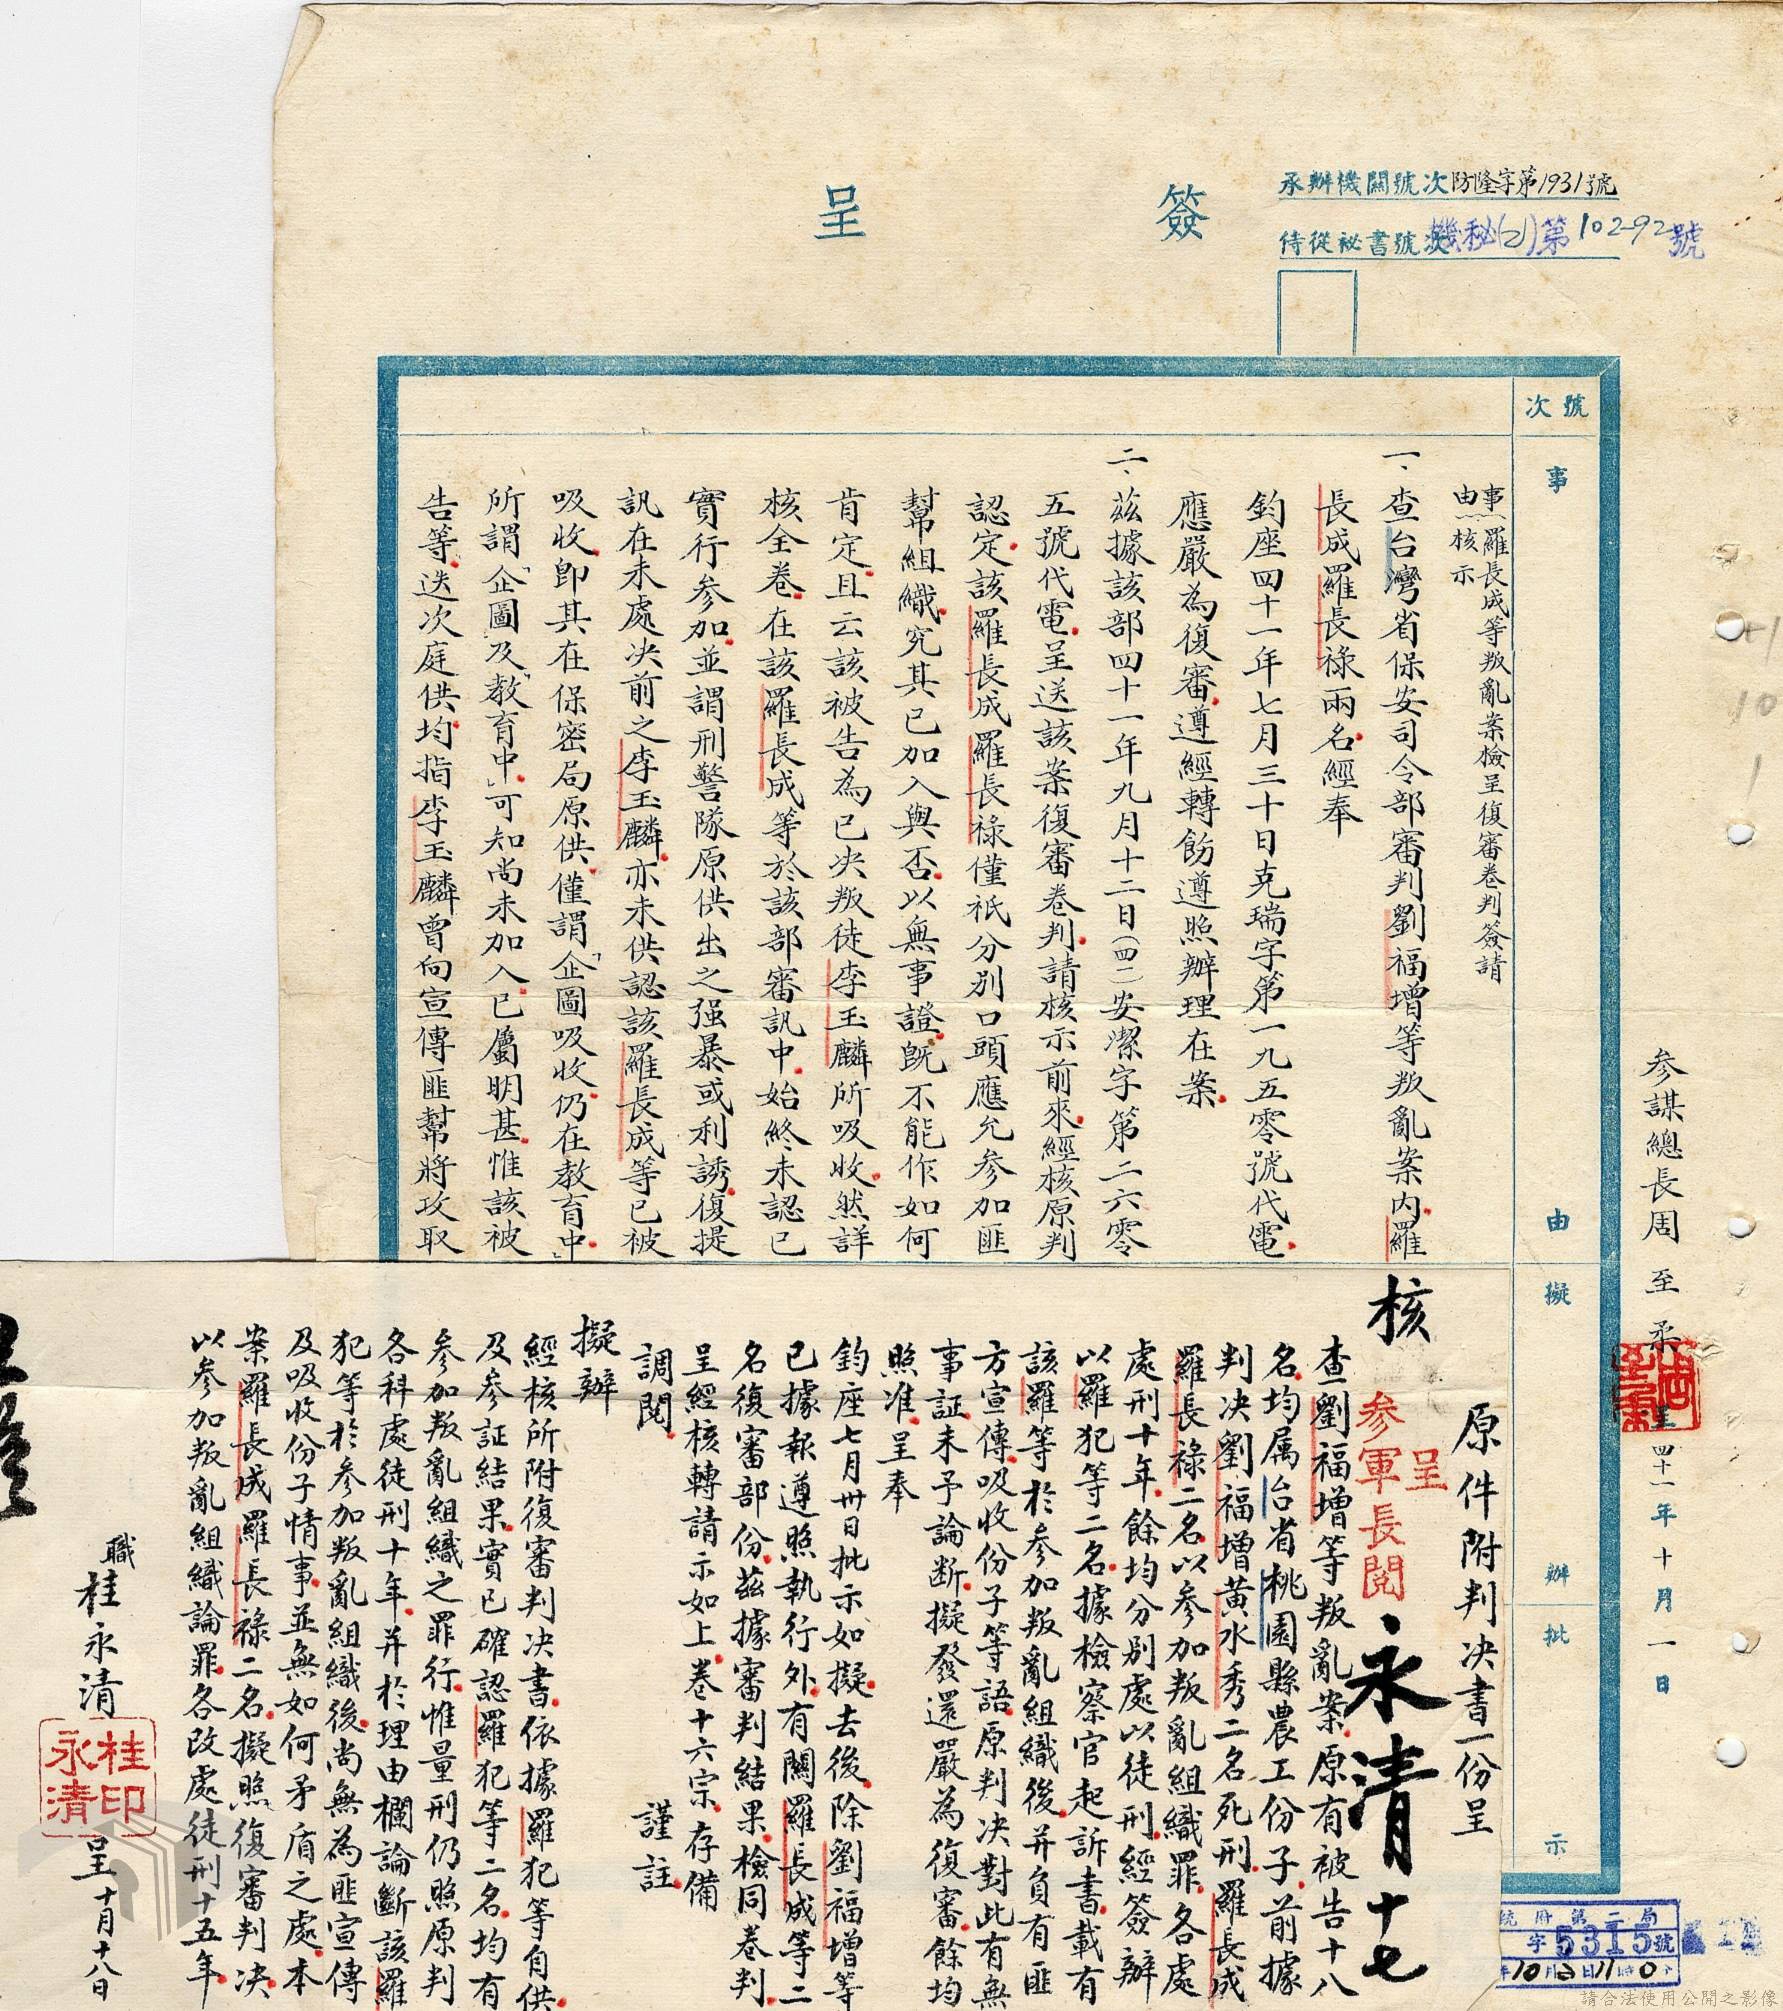 簽呈
承辦機關號次防隆字第1931號
侍從祕書號次機秘(乙)第102-92號
號次
事由
擬辦
批示
事由
羅長成等叛亂案檢呈復審卷判簽請
核示
一、查台灣省保安司令部審判劉福增等叛亂案內羅
長成羅長祿兩名經奉
鈞座四十一年七月三十日克瑞字第一九五零號代電
應嚴為復審遵經轉飭遵照辦理在案
二、茲據該部四十一年九月十二日(四一)安潔字第二六零
五號代電呈送該案復審卷判請核示前來經核原判
認定該羅長成羅長祿僅祇分別口頭應允參加匪
幫組織究其已加入與否以無事證既不能作如何
肯定且云該被告為已決叛徒李玉麟所吸收然詳
核全卷在該羅長成等於該部審訊中始終未認已
實行參加並謂刑警隊原供出之强暴或利誘復提
訊在未處決前之李玉麟亦未供認該羅長成等已被
吸收卽其在保密局原供僅謂「企圖吸收仍在教育中」
所謂「企圖及」「教育中」可知尚未加入已屬明甚惟該被
告等迭次庭供均指李玉麟曾向宣傳匪幫將攻取
參謀總長周至柔呈四十一年十月一日
原件附判決書一份呈
核
呈
參軍長閱
永清十七
查劉福增等叛亂案原有被告十八
名均属台省桃園縣農工份子前據
判決劉福增黃水秀二名死刑羅長成
羅長祿二名以參加叛亂組織罪各處
處刑十年餘均分別處以徒刑經簽辦
以羅犯等二名據檢察官起訴書載有
該羅等於參加叛亂組織後并負有匪
方宣傳吸收份子等語原判決對此有無
事証未予論断擬發還嚴為復審餘均
照准呈奉
鈞座七月卅日批示如擬去後除劉福增等
已據報遵照執行外有關羅長成等二
名復審部份茲據審判結果檢同卷判
呈經核轉請示如上卷十六宗存備
調閱
謹註
擬辦
經核所附復審判決書依據羅犯等自供
及參証結果實已確認羅犯等二名均有
參加叛亂組織之罪行惟量刑仍照原判
各科處徒刑十年并於理由欄論斷該羅
犯等於參加叛亂組織後尚無為匪宣傳
及吸收份子情事並無如何矛盾之處本
案羅長成羅長祿二名擬照復審判決
以參加叛亂組織論罪各改處徒刑十五年
職桂永清呈十月十八日
桂永清印
統府第二局
字5315號
請合法使用公開之影像